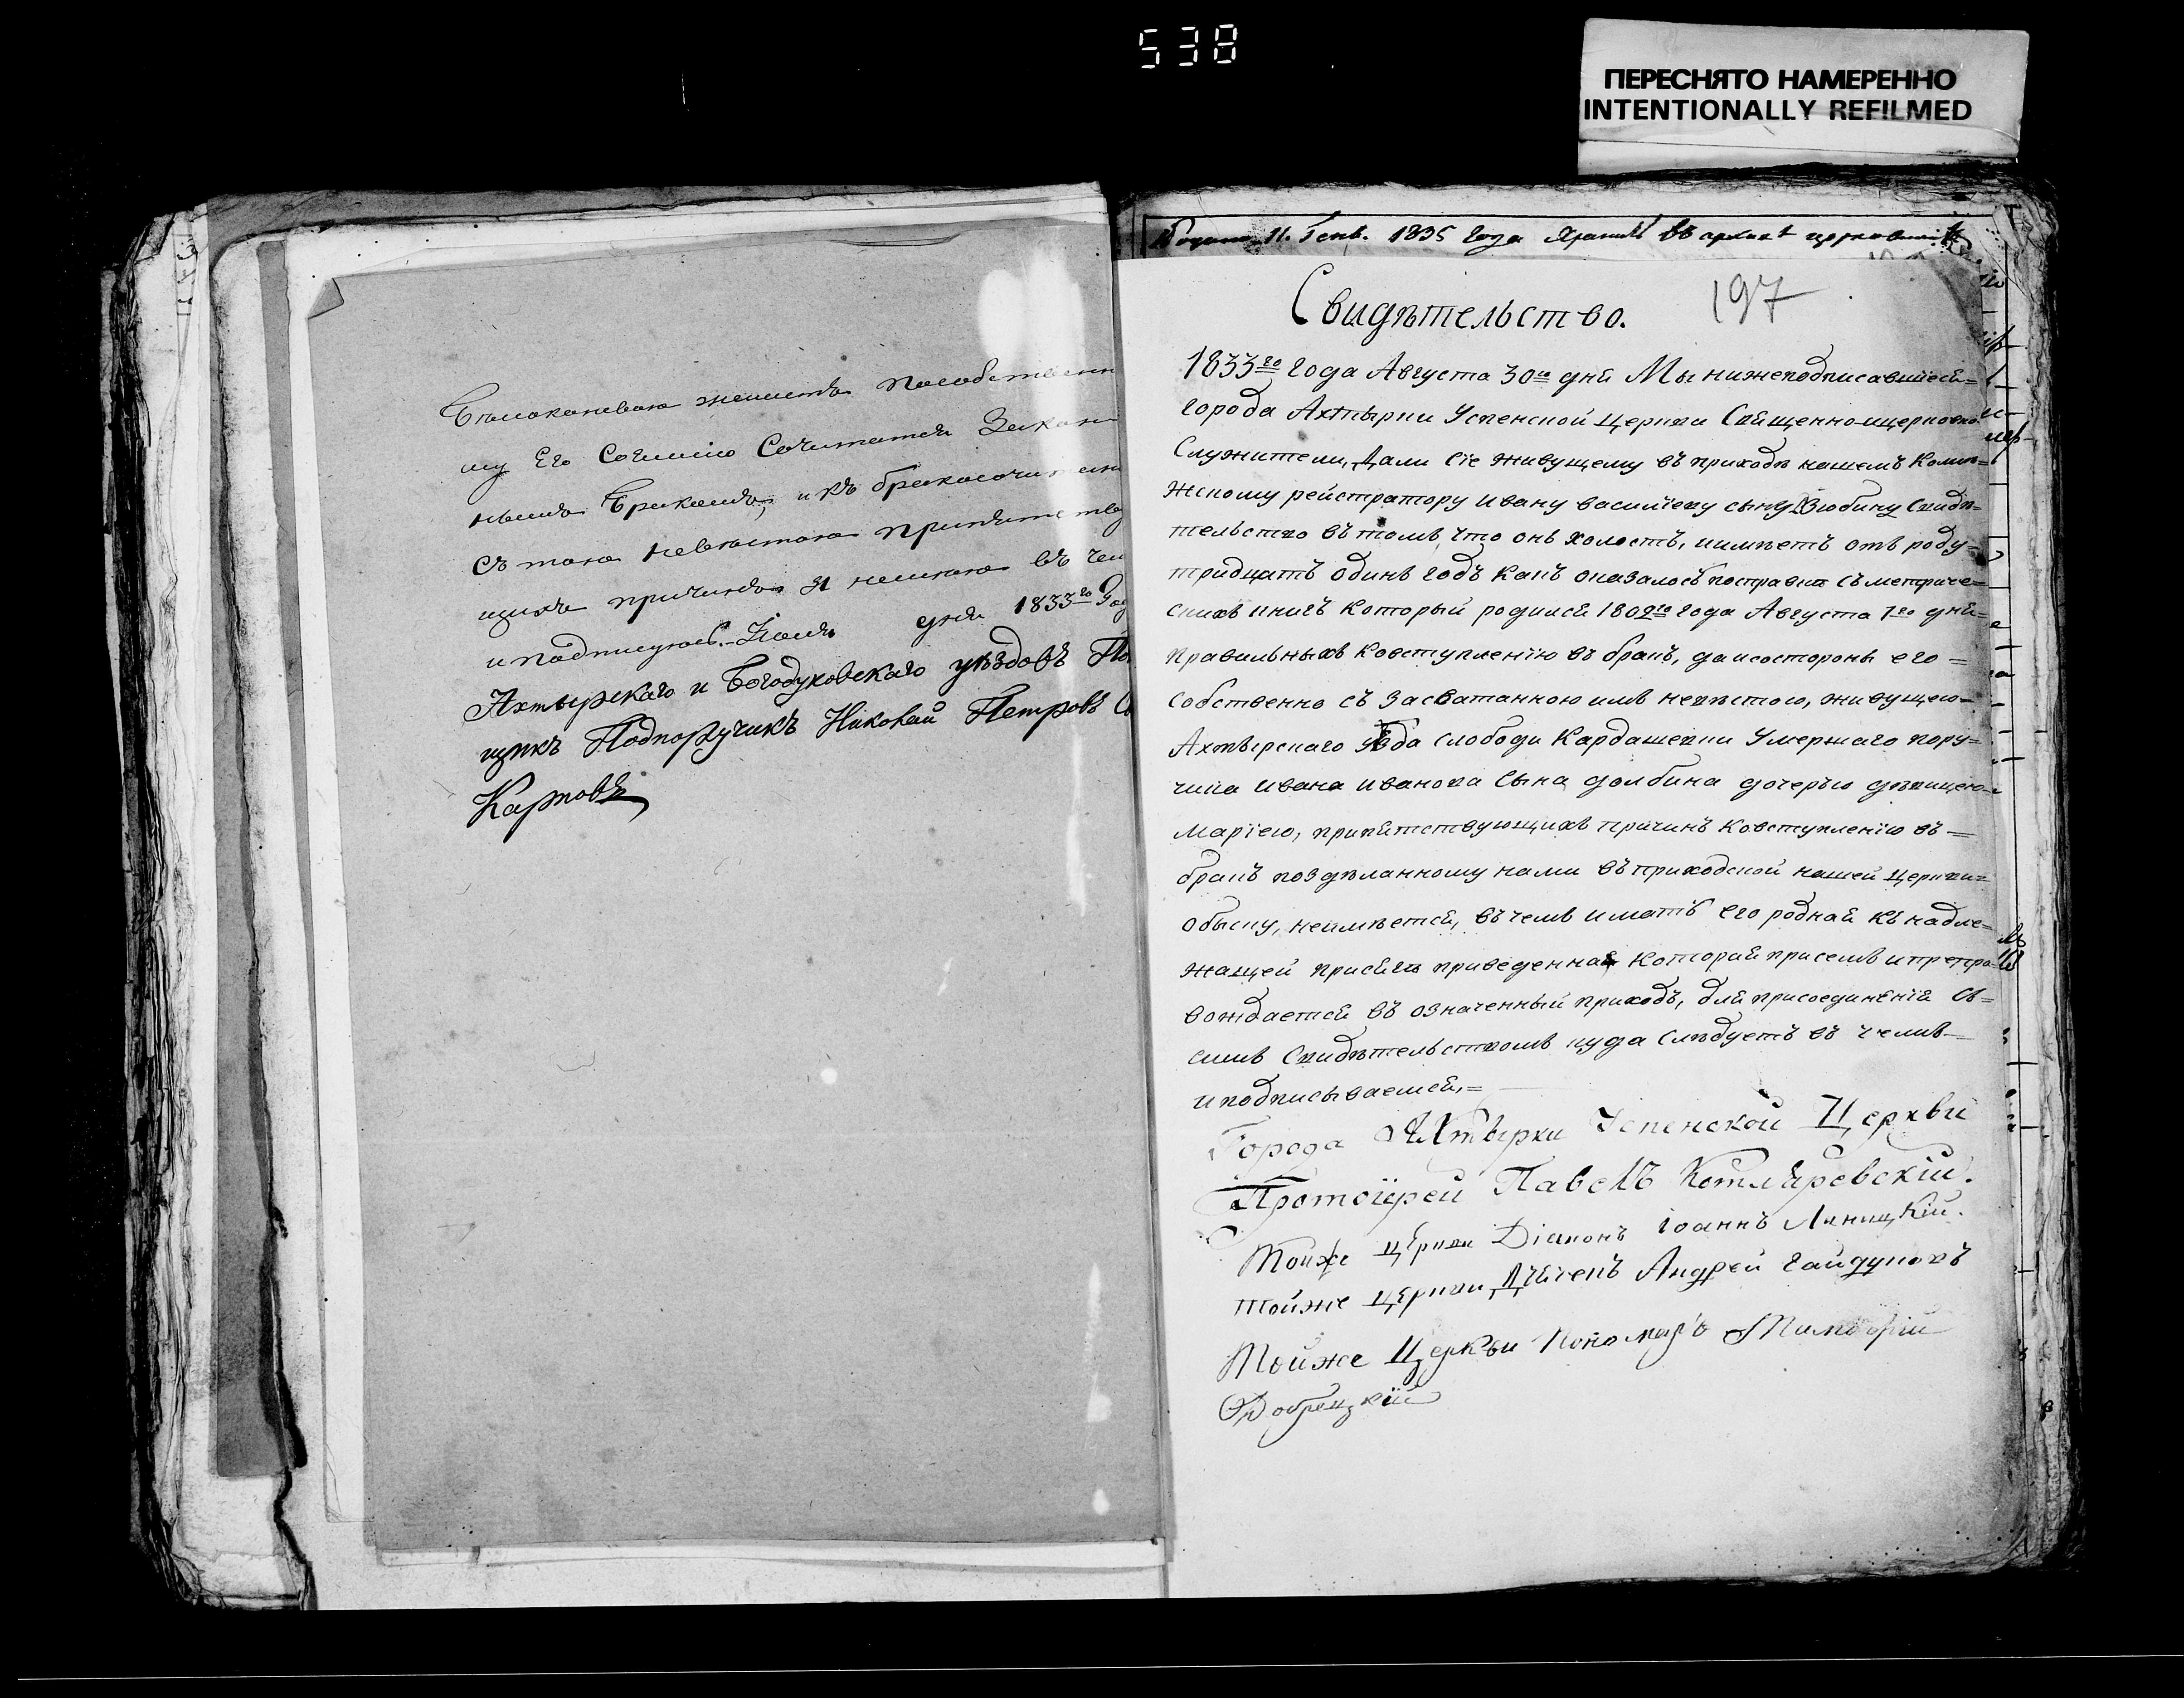 538
ПЕРЕСНЯТО НАМЕРЕННО
INTENTIONALLY REFILMED
женитъ
му Его Согласію Сочитатся Закон
нымъ бракомъ, и къ бракосочи
съ тою невѣстою
щихъ причинъ я
и подписуюсь. Іюля дня 1833го Год
Ахтырскаго и Богодуховскаго уѣздовъ
щикъ Подпоручикъ Николай Петровъ
Карповъ
11. Генв. 1835 года
197
Свидѣтельство.
1833го года Августа 30го дня Мы нижеподписавшіеся=
города Ахтырки Успенской Церкви Священно-и церковно
Служители, Дали сіе живущему въ приходѣ нашемъ Колле=
жскому рейстратору Ивану василіеву сыну Зюбину Свидѣ=
тельство въ томъ, что онъ холостъ, и имѣетъ отъ роду=
тридцать одинъ годъ какъ оказалось по справкѣ съ метриче=
скихъ книгъ который родился 1802го года Августа 1го дня=
правильныхъ ковступленію въ бракъ, да и со стороны его=
собственно съ засватанною имъ невѣстою, живущею=
Ахтырскаго уѣзда слободи Кардашевки Умершаго пору=
чика Ивана Иванова Сына долбина дочерью дѣвицею=
Маріею, припятствующихъ причинъ ковступленію въ=
бракъ поздѣланному нами въ приходской нашей церкви=
обыску, неимѣется, въ чемъ и мать его родная къ надле=
жащей присягѣ приведенная которая присемъ и препро=
вождается въ означенный приходъ, для присоединенія съ=
симъ Свидѣтельствомъ куда слѣдуетъ въ чемъ
и подписываемся,=
Города Ахтырки Успенской Церкви
Протоіерей Павелъ Котляревскій.
Тойже церкви Діаконъ Іоаннъ
тойже церкви Дьячекъ Андрей Гайдуковъ
Тойже Церкви Пономарь Тимофей
Добрецкій